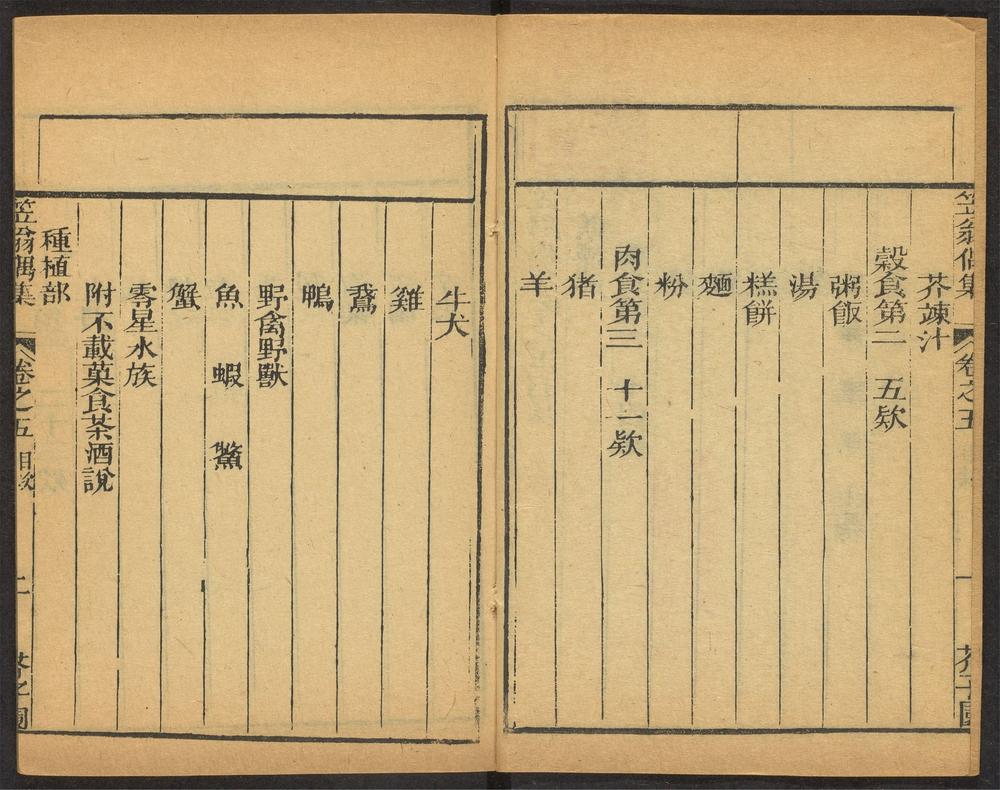 笠翁偶集 卷之五 一 芥子園
芥辣汁
穀食第二 五欵
粥飯
湯
糕餅
麵
粉
肉食第三 十一欵
猪
羊
牛犬
雞
鵞
鴨
野禽野獸
魚 蝦 鱉
蟹
零星水族
附不載菓食茶酒說
種植部
笠翁偶集 卷之五 目欵 二 芥子園